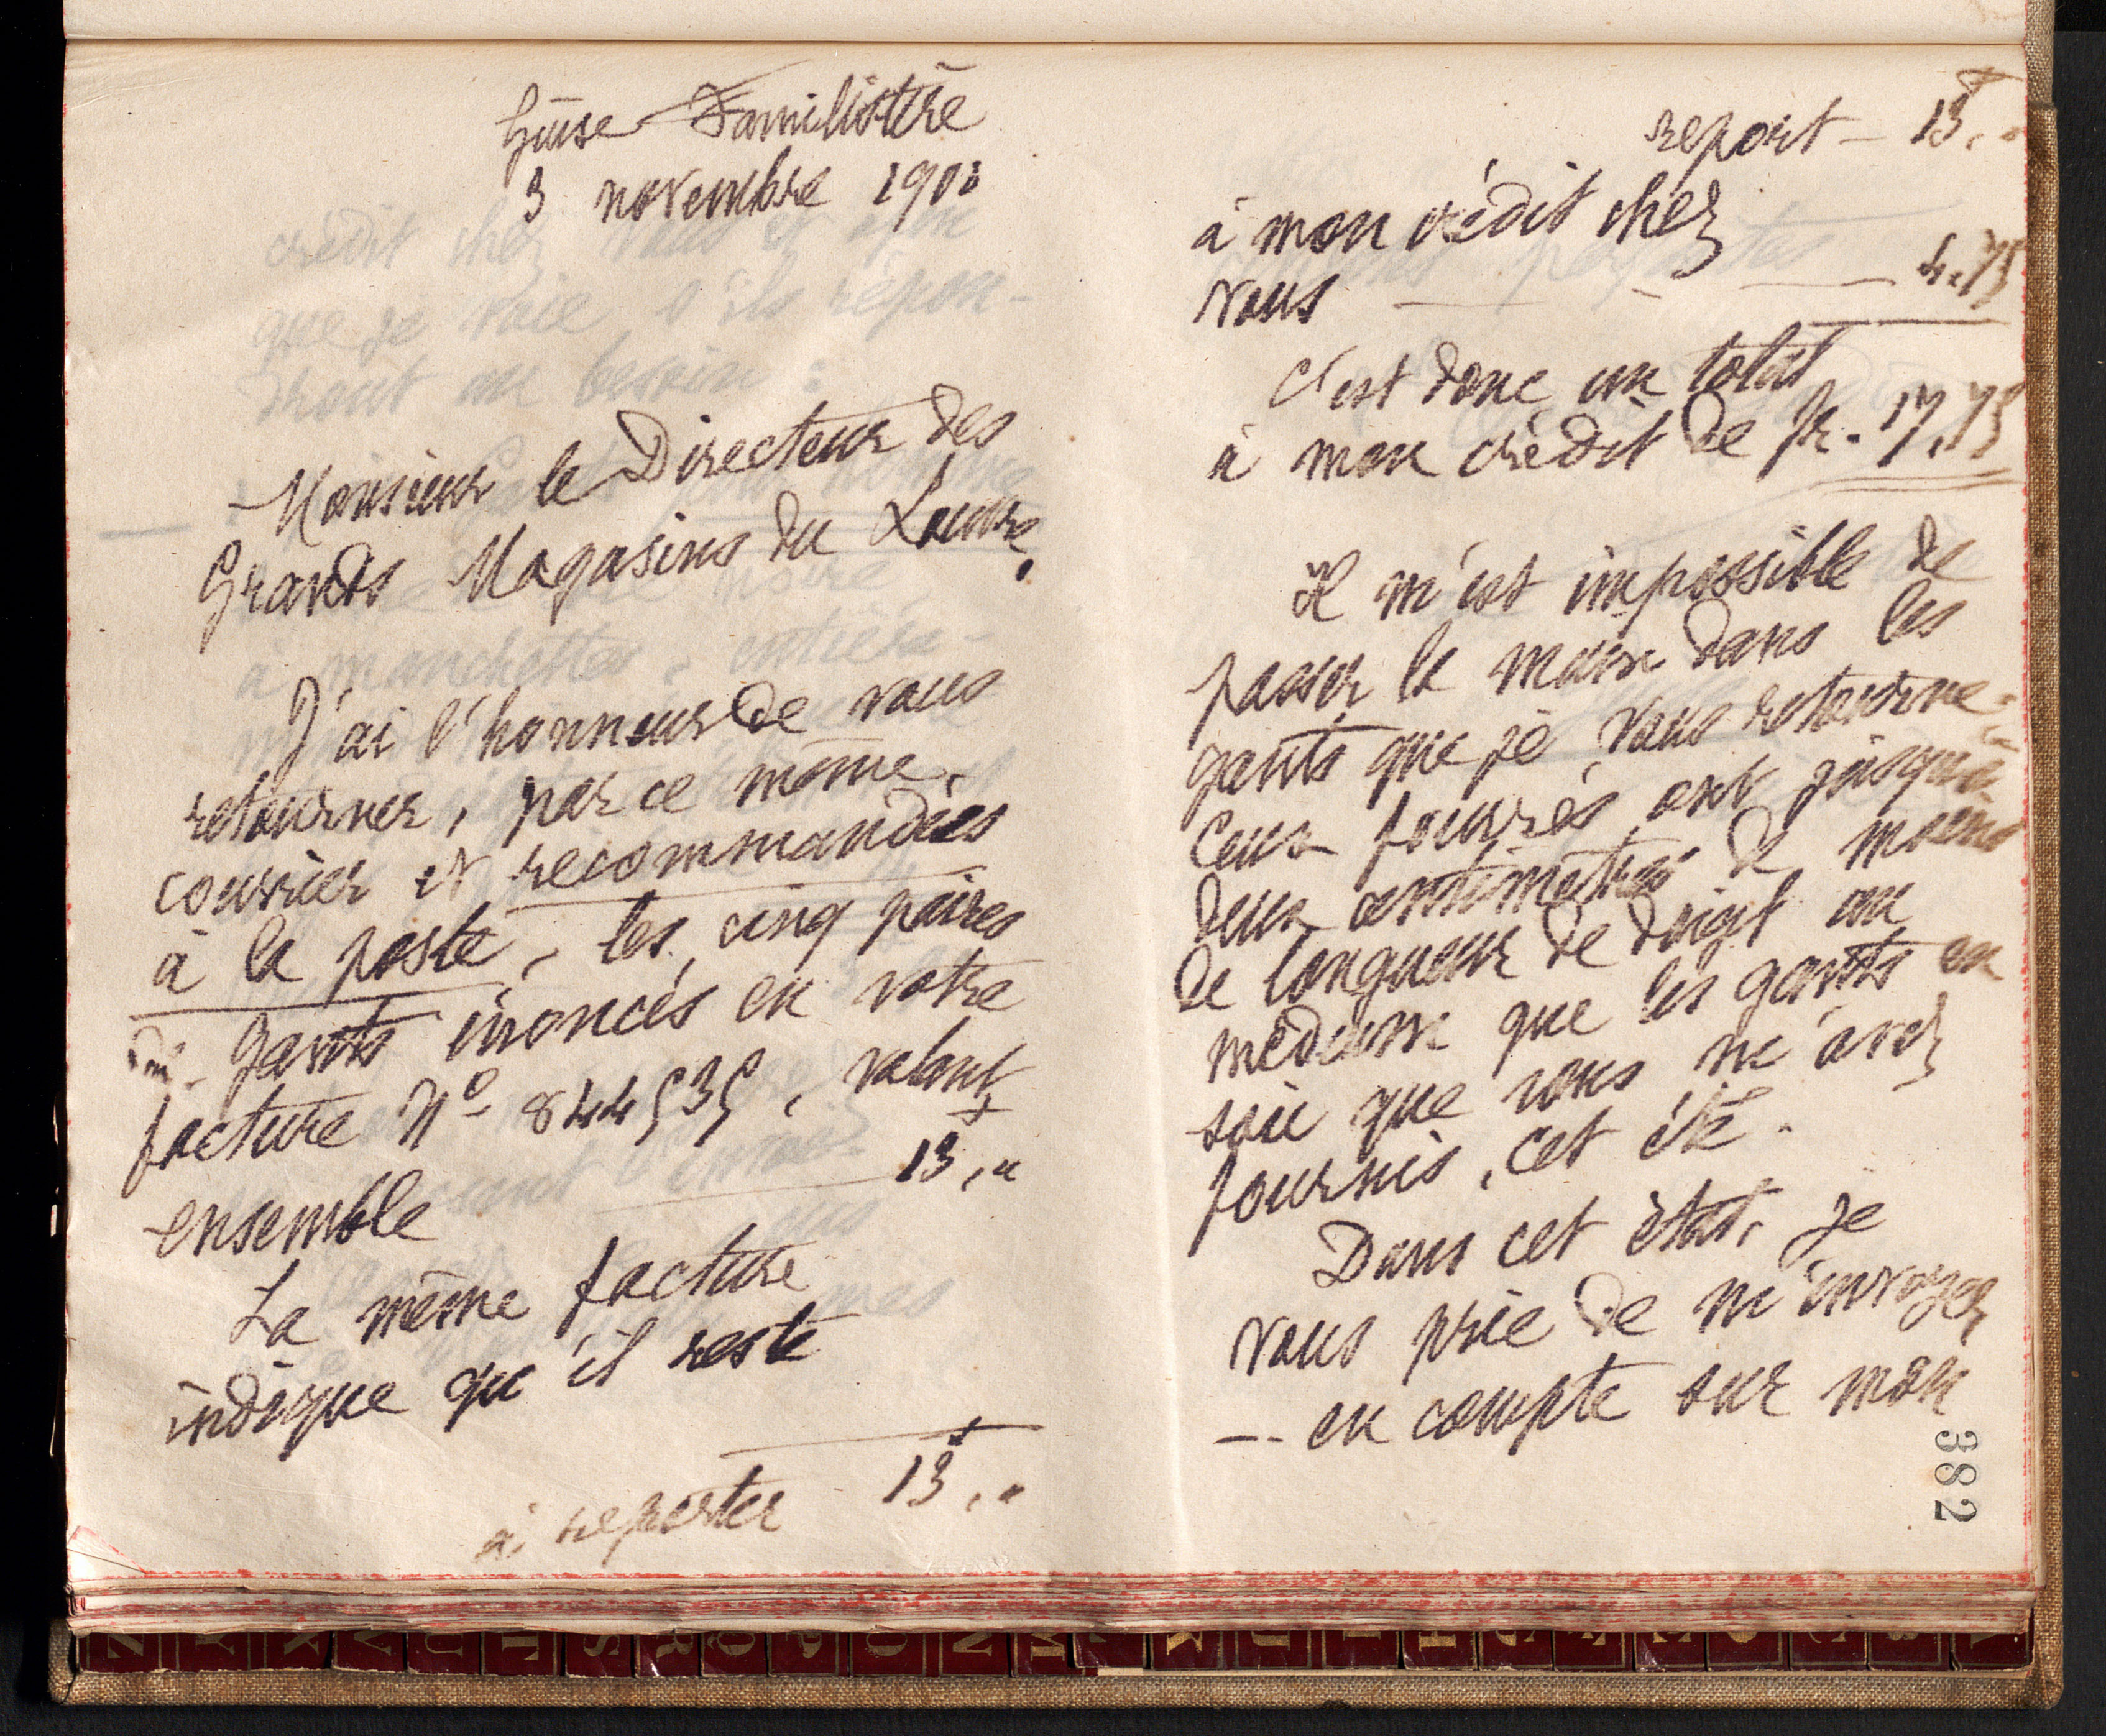 Guise Familistère
3 novembre 1900
Monsieur le Directeur des
Grands Magasins du Louvre,
J'ai l'honneur de vous
retourner, par ce même
courrier et recommandées
à la poste, les cinq paires
de gants énoncés en votre
facture No 844535, valant
ensemble 13,"
La même facture
indique qu'il reste
à reporter 13,"
report - 13,"
à mon crédit chez
vous 4.75
C'est donc un total
à mon crédit de fr. 17,75
Il m'est impossible de
passer la main dans les
gants que je vous retourne.
Ceux fourrés ont jusqu'à
deux centimètres de moins
de longueur de doigt au
médium que les gants en
soie que vous m'avez
fournis, cet été.
Dans cet état, je
vous prie de m'envoyer
en compte sur mon
382
crédit chez vous et afin
que je voie s'ils répon-
dront au besoin :
à manchettes, entière-
Z Y X V U T S R Q P O N M L K J I H G F E D C B A